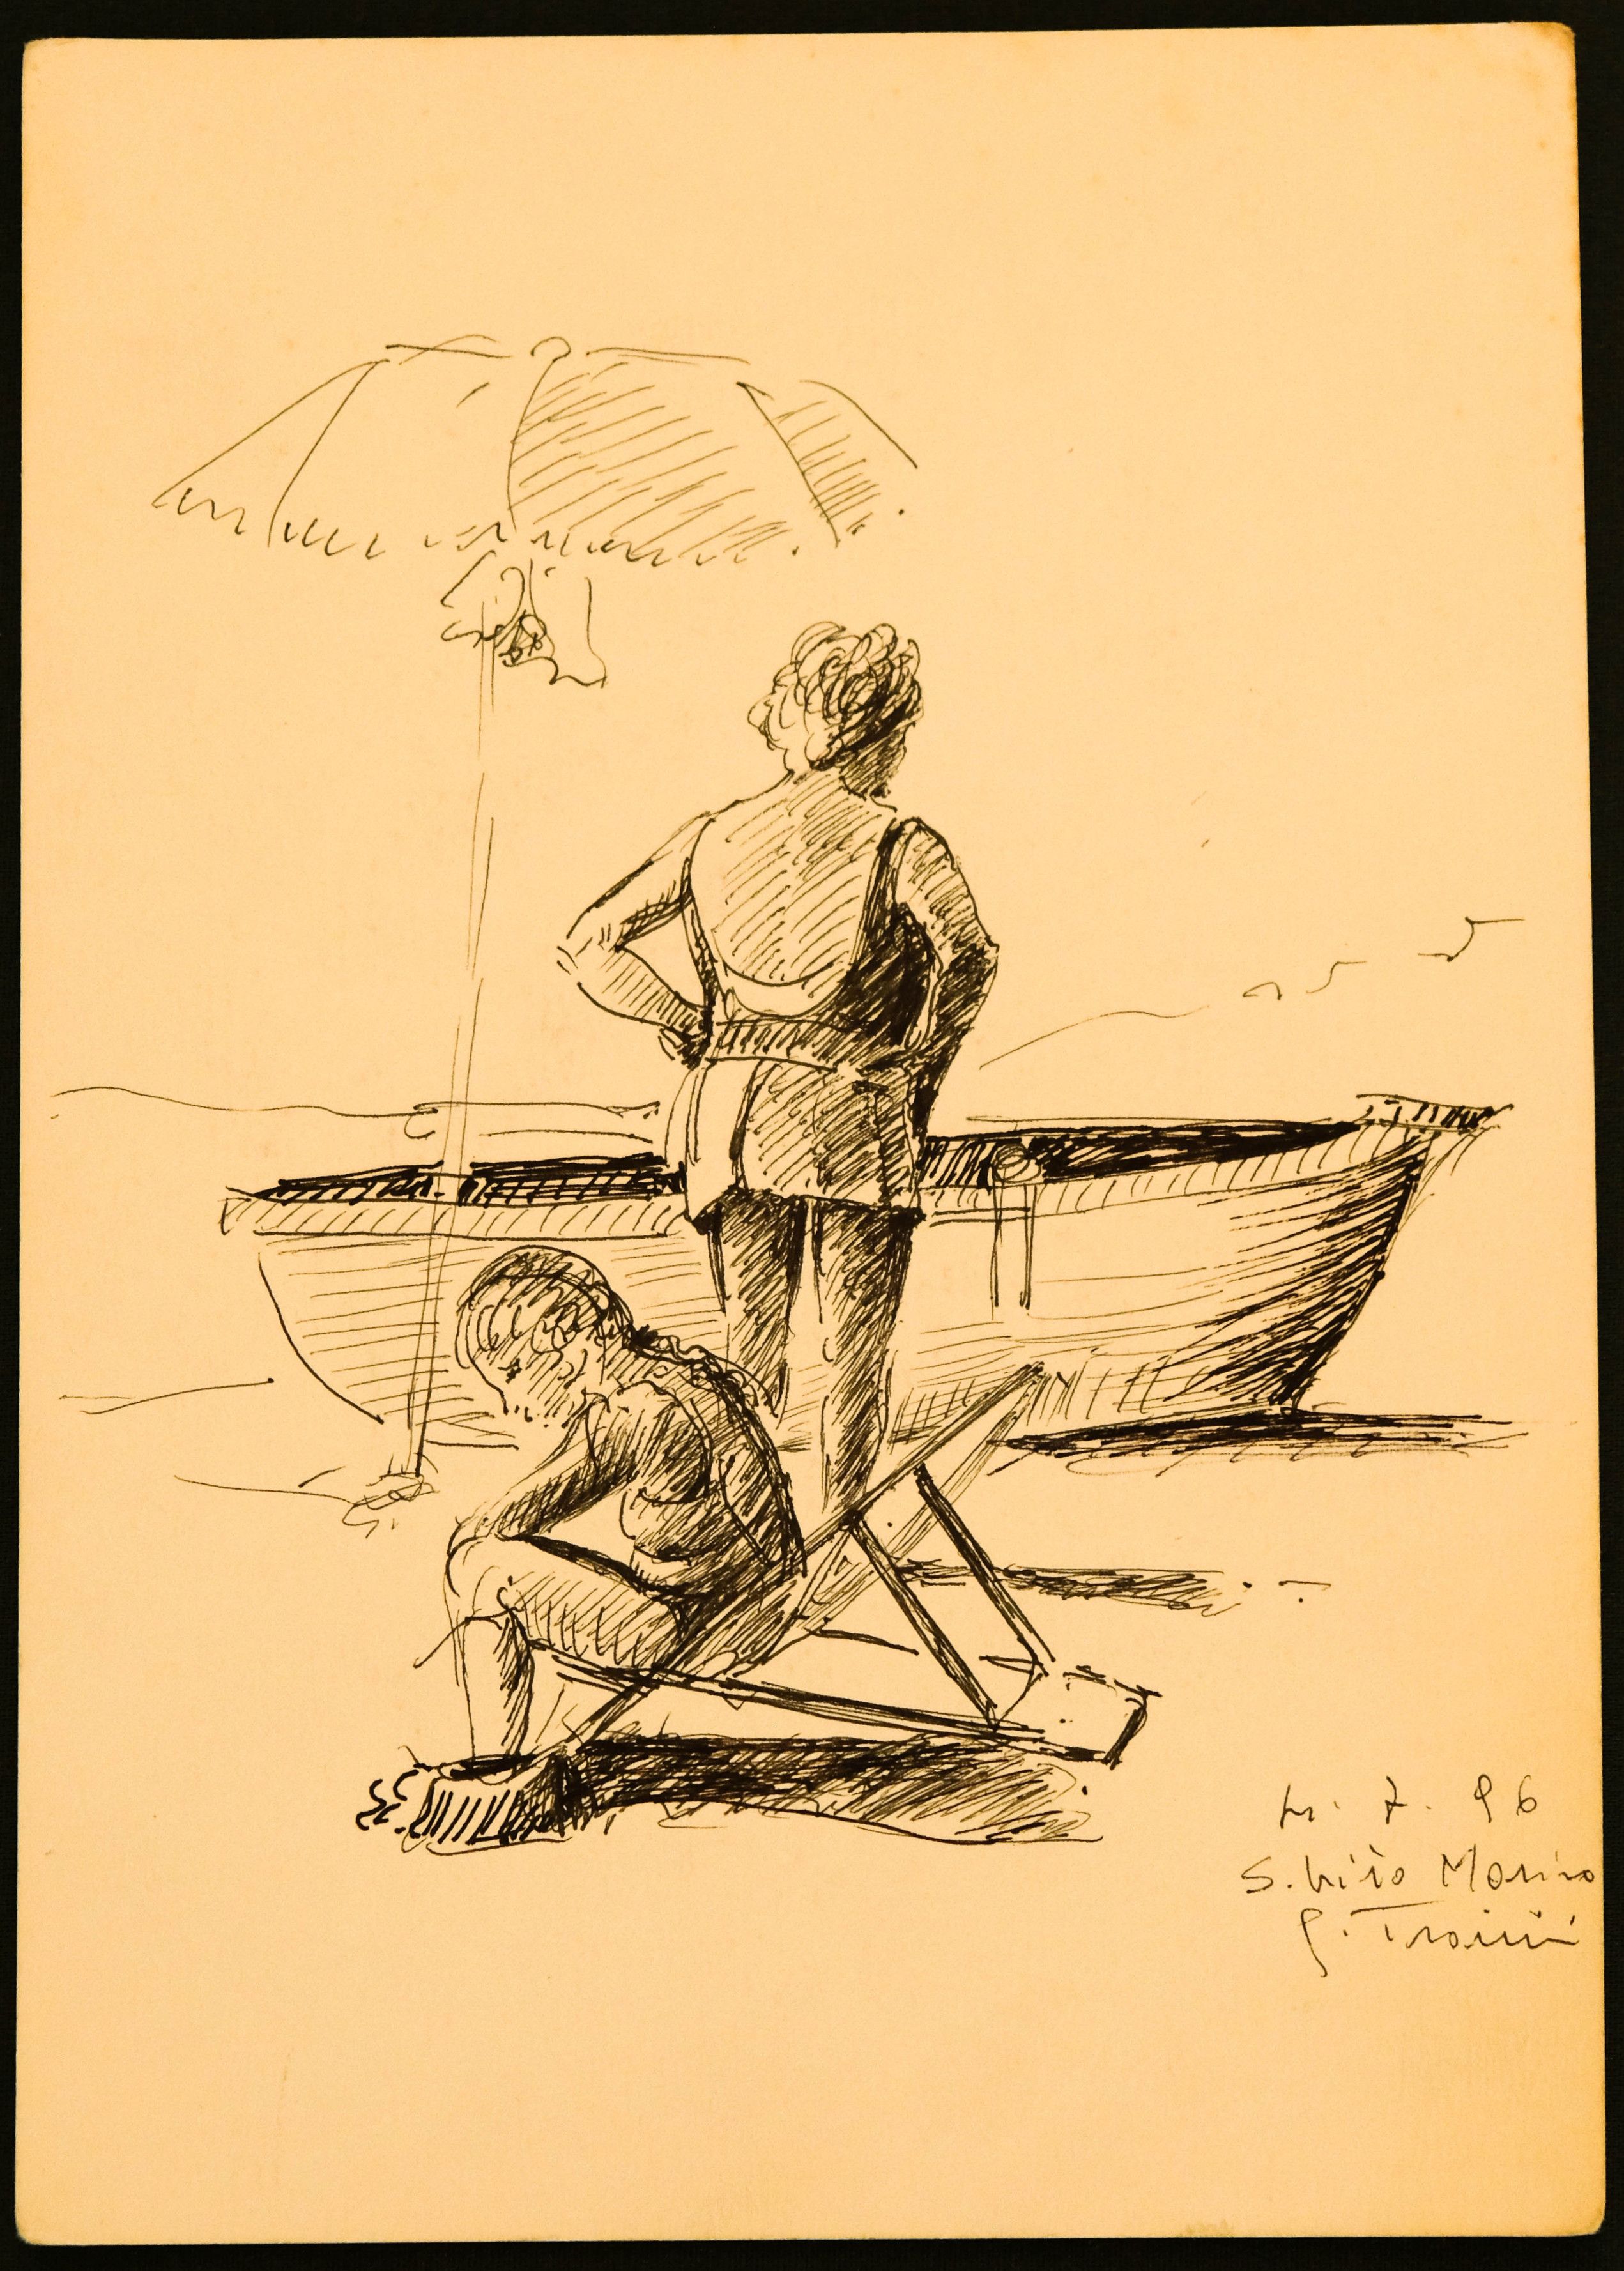 7. 96
S. Vito Marino
G. Troiani